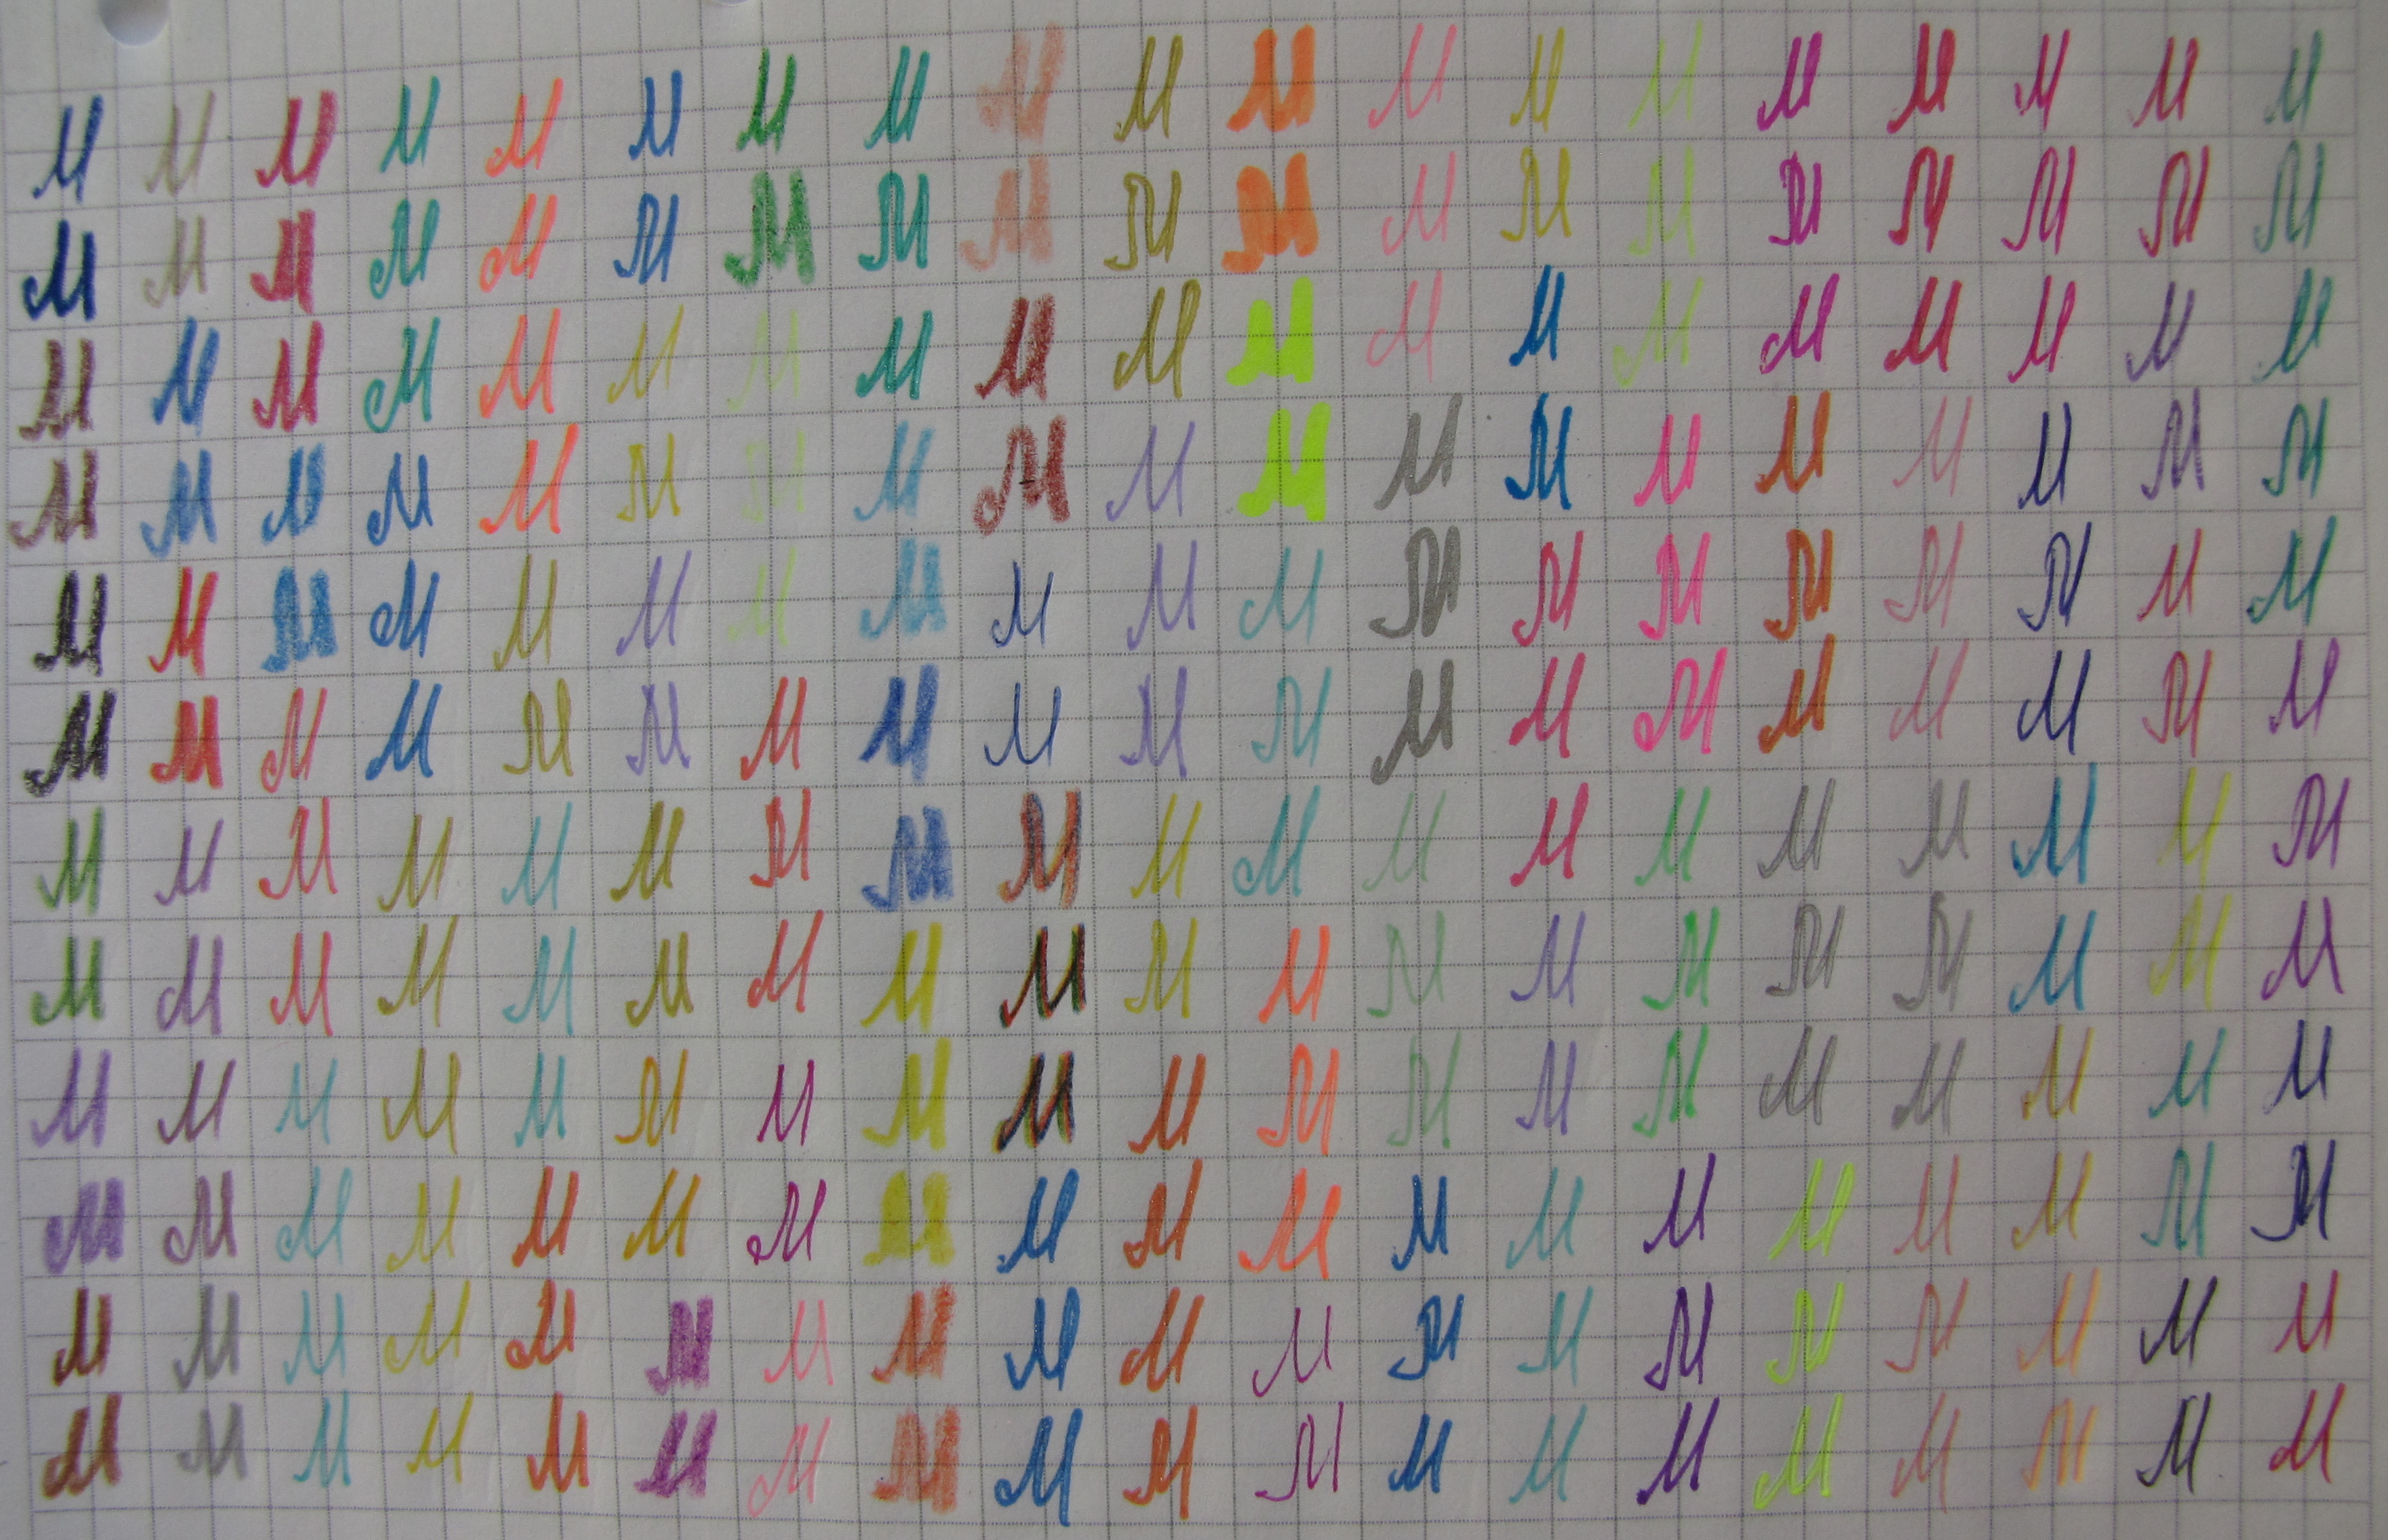 M M M M M M M M M M M M M M M M M M M
M M M M M M M M M M M M M M M M M M M
M M M M M M M M M M M M M M M M M M M
M M M M M M M M M M M M M M M M M M M
M M M M M M M M M M M M M M M M M M M
M M M M M M M M M M M M M M M M M M M
M M M M M M M M M M M M M M M M M M M
M M M M M M M M M M M M M M M M M M M
M M M M M M M M M M M M M M M M M M M
M M M M M M M M M M M M M M M M M M M
M M M M M M M M M M M M M M M M M M M
M M M M M M M M M M M M M M M M M M M